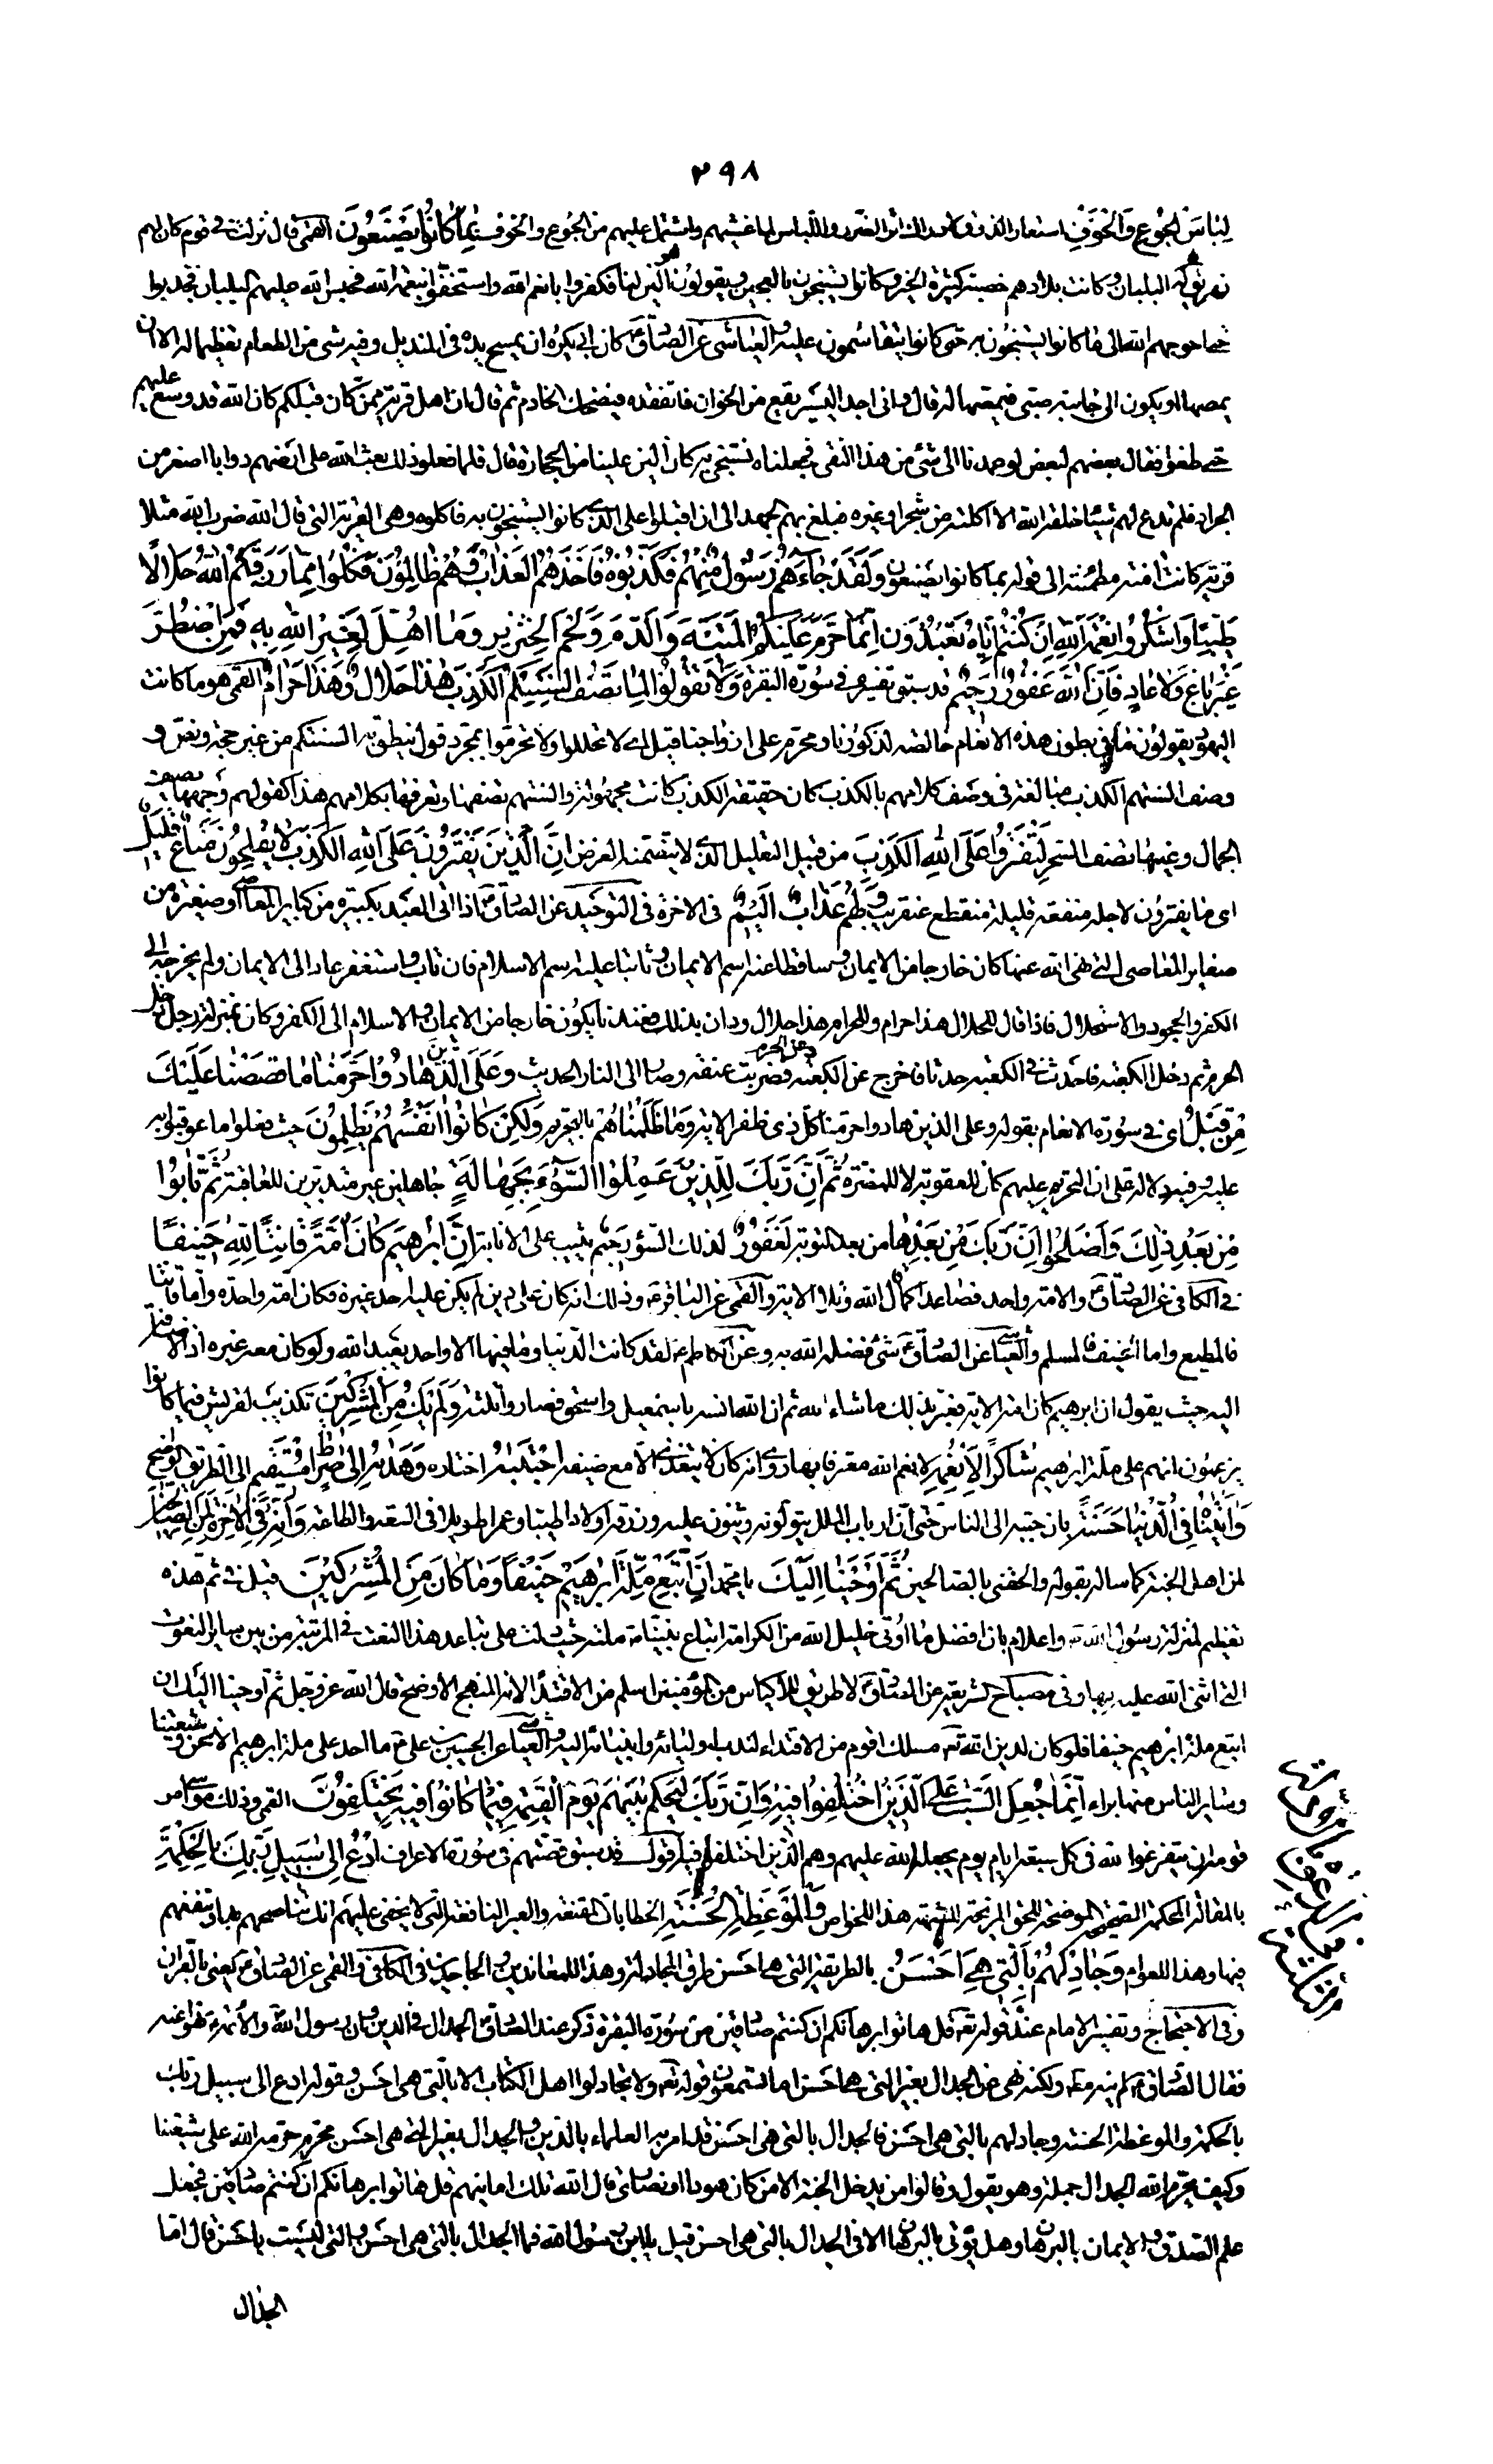 ٢٩٨
لِبَاسَ الْجُوعِ وَالْخَوْفِ استعار الذوق لادراك اثر الضرر واللباس لما غشيهم واشتمل عليهم من الجوع والخوف بِمَا كَانُوا يَصْنَعُونَ القمى قال نزلت فى قوم كان لهم
نهر يقال له البليان وكانت بلادهم خصبة كثيرة الخير وكانوا يستنجون بالعجين ويقولون هو الين لنا فكفروا بانعم الله واستخفوا بنعمة الله فحبس الله عليهم البليان فجدبوا
حتى احوجهم الله الى ما كانوا يستنجون به حتى كانوا يتقاسمون عليه والعياشى عن الصادق ع كان ابى يكره ان يمسح يده فى المنديل وفيه شئ من الطعام تعظيما له الا ان
يمصها او يكون الى جانبه صبى فيمصها له قال وانى اجد اليسير يقع من الخوان فاتفقده فيضحك الخادم ثم قال ان اهل قرية ممن كان قبلكم كان الله قد وسع عليهم
حتى طغوا فقال بعضهم لبعض لو عمدنا الى شئ من هذا النقى فجعلناه نستنجى به كان الين علينا من الحجارة قال فلما فعلوا ذلك بعث الله على ارضهم دوابا اصغر من
الجراد فلم تدع لهم شيئا خلقه الله الا اكلته من شجر او غيره فبلغ بهم الجهد الى ان اقبلوا على الذى كانوا يستنجون به فاكلوه وهى القرية التى قال الله ضرب الله مثلا
قرية كانت امنة مطمئنة الى قوله بما كانوا يصنعون وَلَقَدْ جَاءَهُمْ رَسُولٌ مِنْهُمْ فَكَذَّبُوهُ فَأَخَذَهُمُ الْعَذَابُ وَهُمْ ظَالِمُونَ فَكُلُوا مِمَّا رَزَقَكُمُ اللهُ حَلَالًا
طَيِّبًا وَاشْكُرُوا نِعْمَةَ اللهِ إِنْ كُنْتُمْ إِيَّاهُ تَعْبُدُونَ إِنَّمَا حَرَّمَ عَلَيْكُمُ الْمَيْتَةَ وَالدَّمَ وَلَحْمَ الْخِنْزِيرِ وَمَا أُهِلَّ لِغَيْرِ اللهِ بِهِ فَمَنِ اضْطُرَّ
غَيْرَ بَاغٍ وَلَا عَادٍ فَإِنَّ اللهَ غَفُورٌ رَحِيمٌ قد سبق تفسيره فى سورة البقرة وَلَا تَقُولُوا لِمَا تَصِفُ أَلْسِنَتُكُمُ الْكَذِبَ هَذَا حَلَالٌ وَهَذَا حَرَامٌ القمى هو ما كانت
اليهود يقولون ما فى بطون هذه الانعام خالصة لذكورنا ومحرم على ازواجنا قيل اى لا تحللوا ولا تحرموا بمجرد قول ينطق به السنتكم من غير حجة ونص و
وصف السنتهم الكذب مبالغة فى وصف كلامهم بالكذب كان حقيقة الكذب كانت مجهولة والسنتهم تصفها وتعرفها بكلامهم هذا كقولهم وجهها يصف
الجمال وعينها تصف السحر لِتَفْتَرُوا عَلَى اللهِ الْكَذِبَ من قبيل التعليل الذى لا يتضمن الغرض إِنَّ الَّذِينَ يَفْتَرُونَ عَلَى اللهِ الْكَذِبَ لَا يُفْلِحُونَ مَتَاعٌ قَلِيلٌ
اى ما يفترون لاجله منفعة قليلة منقطع عنقريب وَلَهُمْ عَذَابٌ أَلِيمٌ فى الاخرة فى التوحيد عن الصادق ع اذا اتى العبد بكبيرة من كباير المعاصى او صغيرة من
صغاير المعاصى التى نهى الله عنها كان خارجا من الايمان وساقطا عنه اسم الايمان وثابتا عليه اسم الاسلام فان تاب واستغفر عاد الى الايمان ولم يخرجه الى
الكفر والجحود والاستحلال فاذا قال للحلال هذا حرام وللحرام هذا حلال ودان بذلك فعندنا يكون خارجا من الايمان والاسلام الى الكفر وكان بمنزلة رجل دخل
الحرم ثم دخل الكعبة فاحدث فى الكعبة حدثا فاخرج عن الكعبة وعن الحرم فضربت عنقه وصار الى النار الحديث وَعَلَى الَّذِينَ هَادُوا حَرَّمْنَا مَا قَصَصْنَا عَلَيْكَ
مِنْ قَبْلُ اى فى سورة الانعام بقوله وعلى الذين هادوا حرمنا كل ذى ظفر الاية وَمَا ظَلَمْنَاهُمْ بالتحريم وَلَكِنْ كَانُوا أَنْفُسَهُمْ يَظْلِمُونَ حيث فعلوا ما عوقبوا به
عليه وفيه دلالة على ان التحريم عليهم كان للعقوبة لا للمضرة ثُمَّ إِنَّ رَبَّكَ لِلَّذِينَ عَمِلُوا السُّوءَ بِجَهَالَةٍ جاهلين غير متدبرين للعاقبة ثُمَّ تَابُوا
مِنْ بَعْدِ ذَلِكَ وَأَصْلَحُوا إِنَّ رَبَّكَ مِنْ بَعْدِهَا من بعد التوبة لَغَفُورٌ لذلك السوء رَحِيمٌ يثيب على الانابة إِنَّ إِبْرَهِيمَ كَانَ أُمَّةً قَانِتًا لِلهِ حَنِيفًا
فى الكافى عن الصادق ع والامة واحد فصاعدا كما قال الله وتلا الاية والقمى عن الباقر ع وذلك انه كان على دين لم يكن عليه احد غيره فكان امة واحدة واما قانتا
فالمطيع واما الحنيف فالمسلم والعياشى عن الصادق ع شئ فضله الله به وعن الكاظم ع لقد كانت الدنيا وما فيها الا واحد يعبد الله ولو كان معه غيره اذا لاضافه
اليه حيث يقول ان ابرهيم كان امة الاية فغبر بذلك ما شاء الله ثم ان الله انسه باسمعيل واسحق فصاروا ثلثة وَلَمْ يَكُ مِنَ الْمُشْرِكِينَ تكذيب لقريش فيما كانوا
يزعمون انهم على ملة ابرهيم شَاكِرًا لِأَنْعُمِهِ لانعم الله معترفا بها روى انه كان لا يتغذى الا مع ضيفه اجْتَبَيهُ اختاره وَهَدَيهُ إِلَى صِرَاطٍ مُسْتَقِيمٍ الى الطريق الواضح
وَآتَيْنَاهُ فِى الدُّنْيَا حَسَنَةً بان حببه الى الناس حتى ان ارباب الملل يتولونه ويثنون عليه ورزقه اولادا طيبا وعمرا طويلا فى السعة والطاعة وَإِنَّهُ فِى الْآخِرَةِ لَمِنَ الصَّالِحِينَ
لمن اهل الجنة كما ساله بقوله والحقنى بالصالحين ثُمَّ أَوْحَيْنَا إِلَيْكَ يا محمد أَنِ اتَّبِعْ مِلَّةَ إِبْرَهِيمَ حَنِيفًا وَمَا كَانَ مِنَ الْمُشْرِكِينَ قيل فى ثم هذه
تعظيم لمنزلة رسول الله ص واعلام بان افضل ما اوتى خليل الله من الكرامة اتباع نبينا ملته حيث دلت على تباعد هذا النعت فى المرتبة من بين ساير النعوت
التى اثنى الله عليه بها وفى مصباح الشريعة عن الصادق ع لا طريق للاكياس من المؤمنين اسلم من الاقتداء لانه المنهج الاوضح قال الله عز وجل ثم اوحينا اليك ان
اتبع ملة ابرهيم حنيفا فلو كان لدين الله تع مسلك اقوم من الاقتداء لندب اولياءه وانبياءه اليه والعياشى عن الحسين بن على ع ما احد على ملة ابرهيم الا نحن وشيعتنا
وساير الناس منها براء إِنَّمَا جُعِلَ السَّبْتُ عَلَى الَّذِينَ اخْتَلَفُوا فِيهِ وَإِنَّ رَبَّكَ لَيَحْكُمُ بَيْنَهُمْ يَوْمَ الْقِيمَةِ فِيمَا كَانُوا فِيهِ يَخْتَلِفُونَ القمى وذلك موسى امر
قومه ان يتفرغوا لله فى كل سبعة ايام يوم يجعله الله عليهم وهم الذين اختلفوا فيه اقول قد سبق قصتهم فى سورة الاعراف ادْعُ إِلَى سَبِيلِ رَبِّكَ بِالْحِكْمَةِ
بالمقالة المحكمة الصحيحة الموضحة للحق المزيحة للشبهة هذا للخواص وَالْمَوْعِظَةِ الْحَسَنَةِ الخطابات المقنعة والعبر النافعة التى لا يخفى عليهم انك تناصحهم بها وتنفعهم
فيها وهذا للعوام وَجَادِلْهُمْ بِالَّتِى هِىَ أَحْسَنُ بالطريقة التى هى احسن طرق المجادلة وهذا للمعاندين والجاحدين فى الكافى والقمى عن الصادق ع يعنى بالقران
وفى الاحتجاج وتفسير الامام عند قوله تع قل هاتوا برهانكم ان كنتم صادقين من سورة البقرة ذكر عند الصادق ع الجدال فى الدين وان رسول الله والائمة ع نهوا عنه
فقال الصادق ع لم ينه عنه ولكنه نهى عن الجدال بغير التى هى احسن اما تستمعون قوله تع ولا تجادلوا اهل الكتاب الا بالتى هى احسن وقوله ادع الى سبيل ربك
بالحكمة والموعظة الحسنة وجادلهم بالتى هى احسن فالجدال بالتى هى احسن قد امر به العلماء بالدين والجدال بغير التى هى احسن محرم حرمه الله على شيعتنا
وكيف يحرم الله الجدال جملة وهو يقول وقالوا لن يدخل الجنة الا من كان هودا او نصارى قال الله تلك امانيهم قل هاتوا برهانكم ان كنتم صادقين فجعل
علم الصدق والايمان بالبرهان وهل يؤتى بالبرهان الا فى الجدال بالتى هى احسن قيل يابن رسول الله فما الجدال بالتى هى احسن والتى ليست باحسن قال اما
الجدال